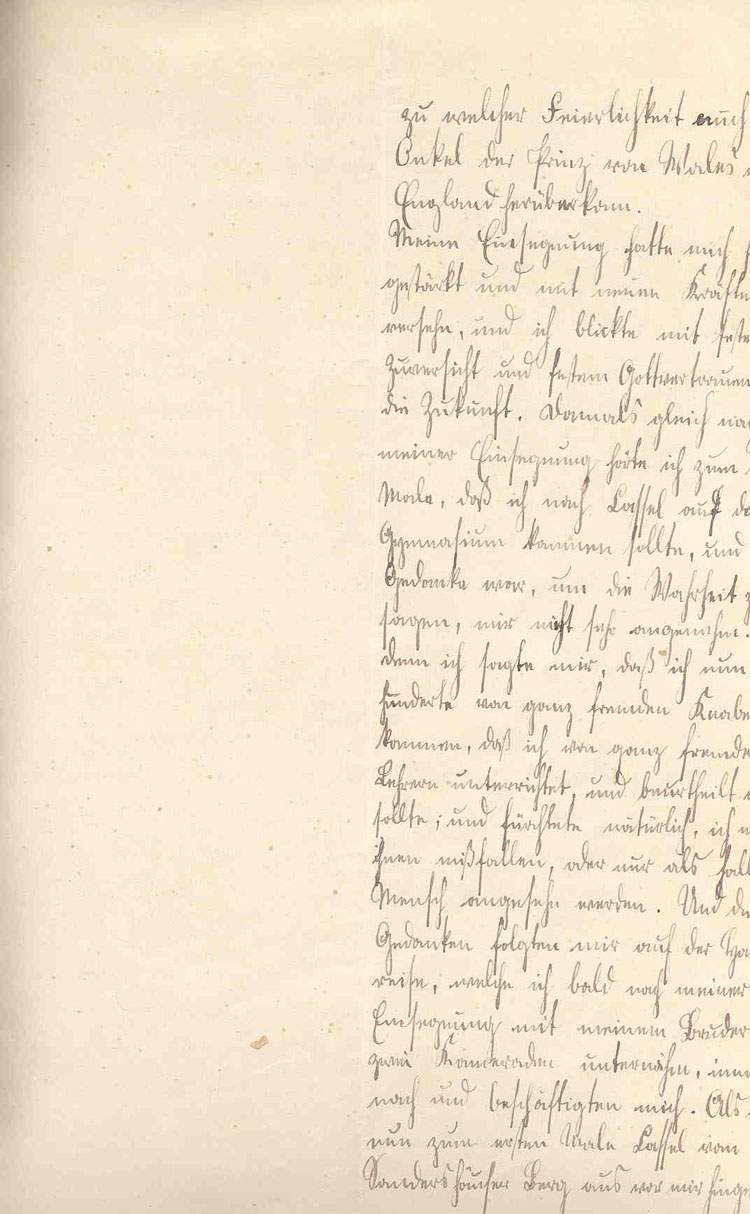 zu welcher Feierlichkeit auch
Onkel der Prinz von Wales
England herüberkam.
Meine Einsegnung hatte mich
gestärkt und mit neuen Kräfte
versehn, und ich blickte mit feste
Zuversicht und festem Gottvertrauen
die Zukunft. Damals gleich na
meiner Einsegnung hörte ich zum
Male, daß ich nach Cassel auf da
Gymnasium kommen sollte, und
Gedanke war, um die Wahrheit z
sagen, mir nicht sehr angenehm.
denn ich sagte mir, daß ich nun
hunderte von ganz fremden Knabe
kommen, daß ich von ganz fremde
Lehrern unterrichtet, und beurtheilt
sollte; und fürchtete natürlich, ich
ihnen mißfallen, oder nur als hall
Mensch angesehn werden. Und die
Gedanken folgten mir auf der Ha
reise, welche ich bald nach meiner
Einsegnung mit meinem Bruder
zwei Kameraden unternahm, imm
nach und beschäftigten mich. Als
nun zum ersten Male Cassel vom
Sandershäuser Berg aus vor mir hinge